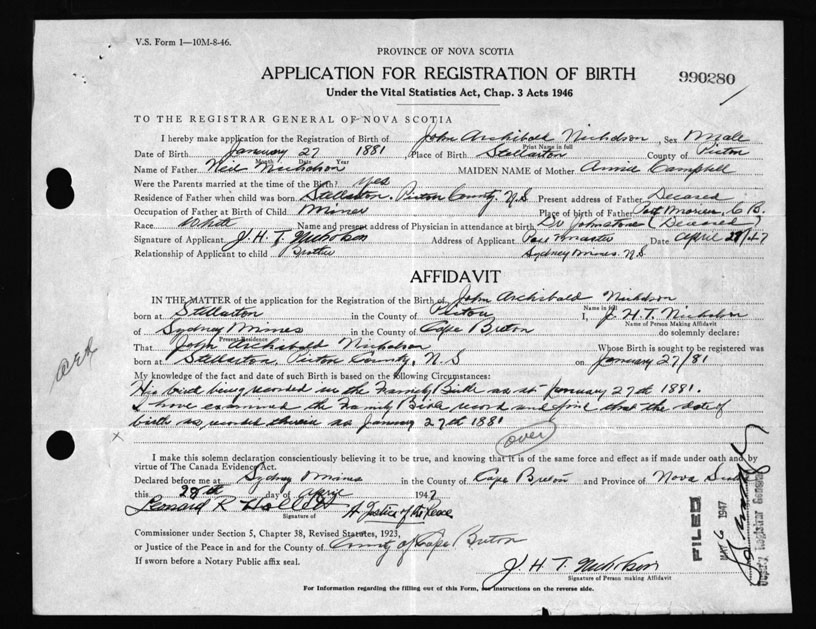 V.S. Form 1—10M-8-46.
PROVINCE OF NOVA SCOTIA
APPLICATION FOR REGISTRATION OF BIRTH
990280
Under the Vital Statistics Act, Chap. 3 Acts 1946
TO THE REGISTRAR GENERAL OF NOVA SCOTIA
I hereby make application for the Registration of Birth of John Archibald Nicholson, Sex Male
Print Name in full
Date of Birth January 27 1881, Place of Birth Stellarton County of Pictou
Month Date Year
Name of Father Neil Nicholson MAIDEN NAME of Mother Annie Campbell
Were the Parents married at the time of the Birth? yes
Residence of Father when child was born Stellarton, Pictou County, N.S Present address of Father Deceased
Occupation of Father at Birth of Child Miner Place of birth of Father Port Morien, C.B.
Race White Name and present address of Physician in attendance at birth Dr Johnstone (Deceased)
Signature of Applicant J.H.T. Nicholson Address of Applicant Post Master Date April 28/47
Relationship of Applicant to child Brother Sydney Mines. N.S.
AFFIDAVIT
IN THE MATTER of the application for the Registration of the Birth of John Archibald Nicholson
Name in full
born at Stellarton in the County of Pictou I, J.H.T. Nicholson
Name of Person Making Affidavit
of Sydney Mines in the County of Cape Breton do solemnly declare:
Present Residence
That John Archibald Nicholson Whose Birth is sought to be registered was
born at Stellarton, Pictou County, N.S on January 27/81
My knowledge of the fact and date of such Birth is based on the following Circumstances:
His birth being recorded in the Family Bible as at January 27th 1881.
I have examined the Family Bible record and find that the date of
birth as recorded therein as January 27th 1881
x
over
I make this solemn declaration conscientiously believing it to be true, and knowing that it is of the same force and effect as if made under oath and by
virtue of The Canada Evidence Act.
Declared before me at Sydney Mines in the County of Cape Breton and Province of Nova Scotia
this 28th day of April 1947
Leonard R A Justice of the Peace
Signature of
Commissioner under Section 5, Chapter 38, Revised Statutes, 1923,
or Justice of the Peace in and for the County of County of Cape Breton
If sworn before a Notary Public affix seal.
J.H.T. Nicholson
Signature of Person making Affidavit
For Information regarding the filling out of this Form, see instructions on the reverse side.
FILED
MAY 6 1947
Deputy Registrar General